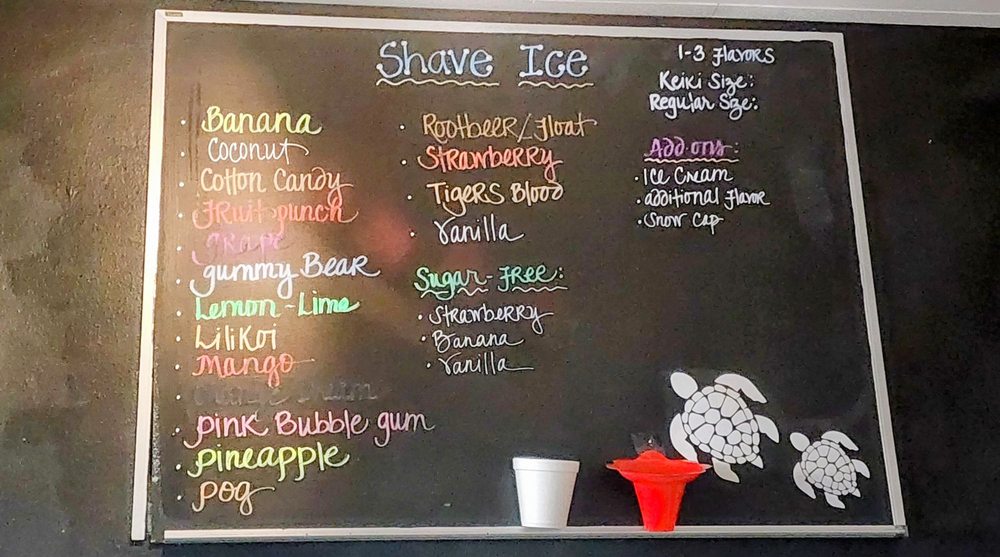 Shave Ice
• Banana
• Coconut
• Cotton Candy
• Fruit punch
• grape
• gummy Bear
• Lemon-Lime
• LiliKoi
• Mango
•
• pink Bubble gum
• pineapple
• pog
• Rootbeer/Float
• Strawberry
• Tigers Blood
• Vanilla
Sugar-Free:
• Strawberry
• Banana
• Vanilla
1-3 Flavors
Keiki Size:
Regular Size:
Add ons:
• Ice Cream
• additional Flavor
• Snow Cap